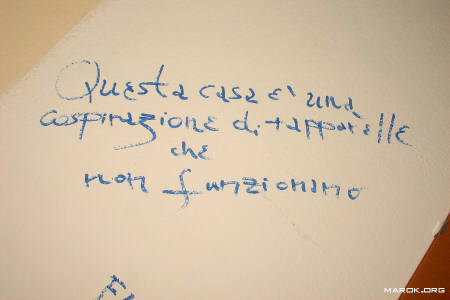 Questa casa e' una
cospirazione di tapparelle
che
non funzionano
MAROK.ORG